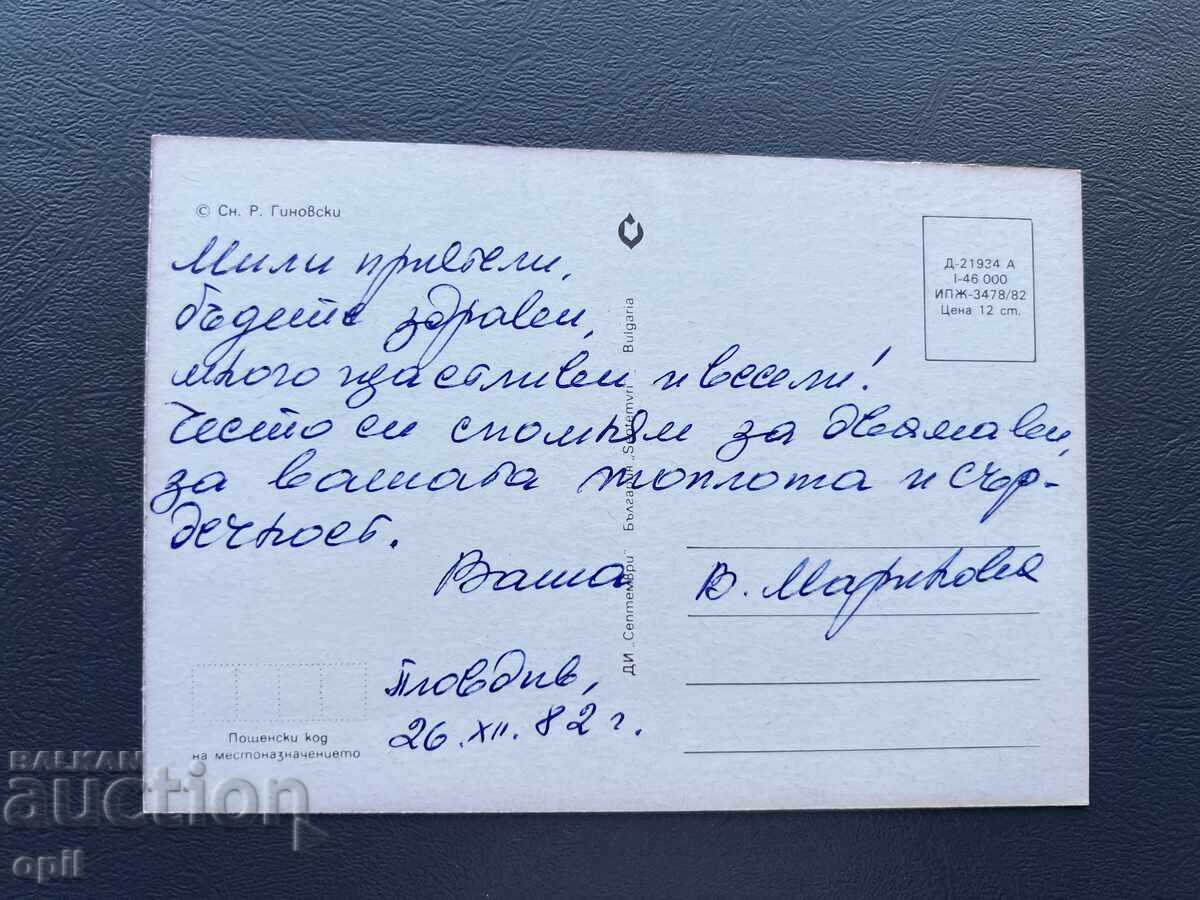 © Сн. Р. Гиновски
Мили приятели,
бъдете здравеи,
много щастливеи и весели!
Често си спомням за двамавеи,
за вашата топлота и сър-
дечност.
Ваша В. Маринова
Пловдив,
26.XII.82 г.
Пощенски код
на местоназначението
ДИ „Септември" Български „Septemvri" Bulgaria
Д-21934 А
I-46 000
ИПЖ-3478/82
Цена 12 ст.
BALKAN
auction
opil